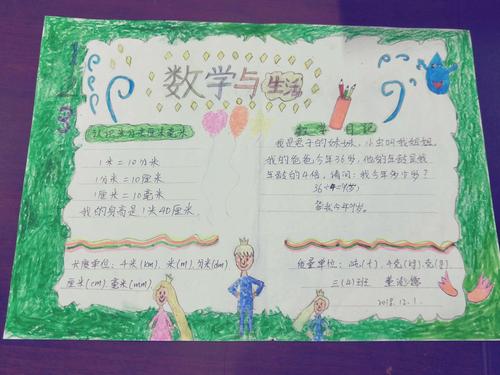 数学与生活
认识米分米厘米毫米
1米=10分米
1分米=10厘米
1厘米=10毫米
我的身高是1米40厘米
长度单位:千米(km).米(m).分米(dm)
厘米(cm).毫米(mm)
数学日记
我是君子的妹妹,小虫叫我姐姐.
我的爸爸今年36岁,他的年龄是我
年龄的4倍,请问:我今年多少岁?
36÷4=9岁.
答我今年9岁.
质量单位:吨(t),千克(kg).克(g)
三(4)班
2018.12.1.